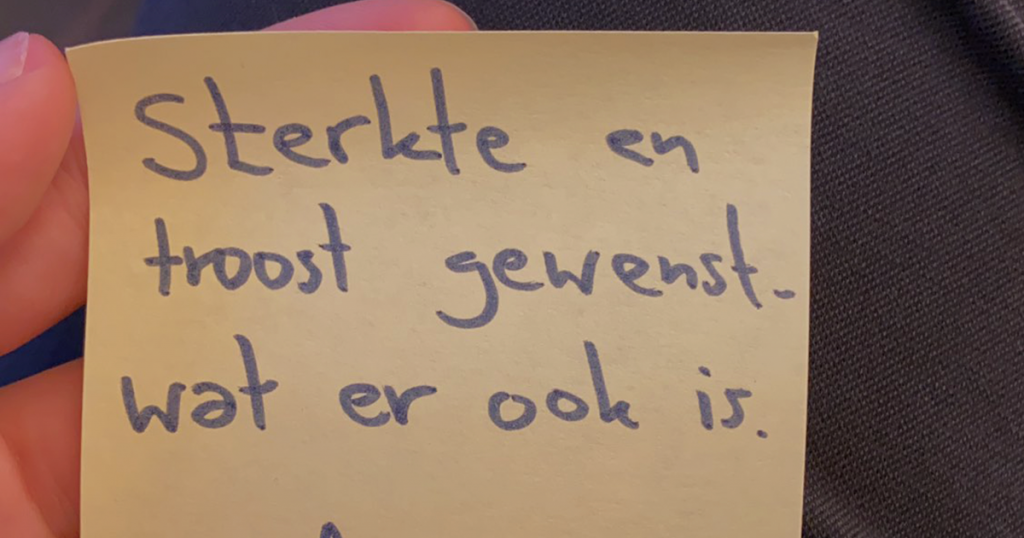 Sterkte en
troost gewenst.
wat er ook is.